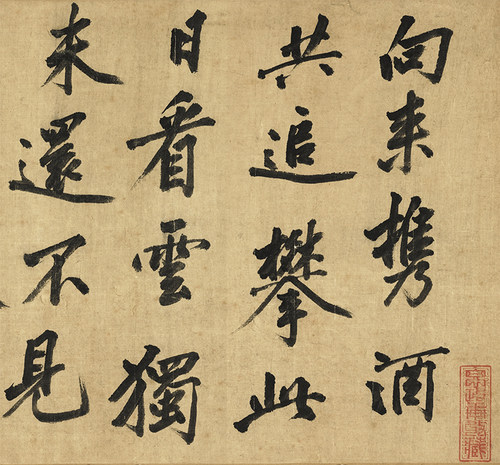 向来携酒
共追攀此
日看雲獨
未還不見